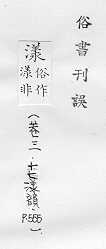 俗書刊誤
漾
俗作
漾非
（卷三·去漾韻，
P.555）